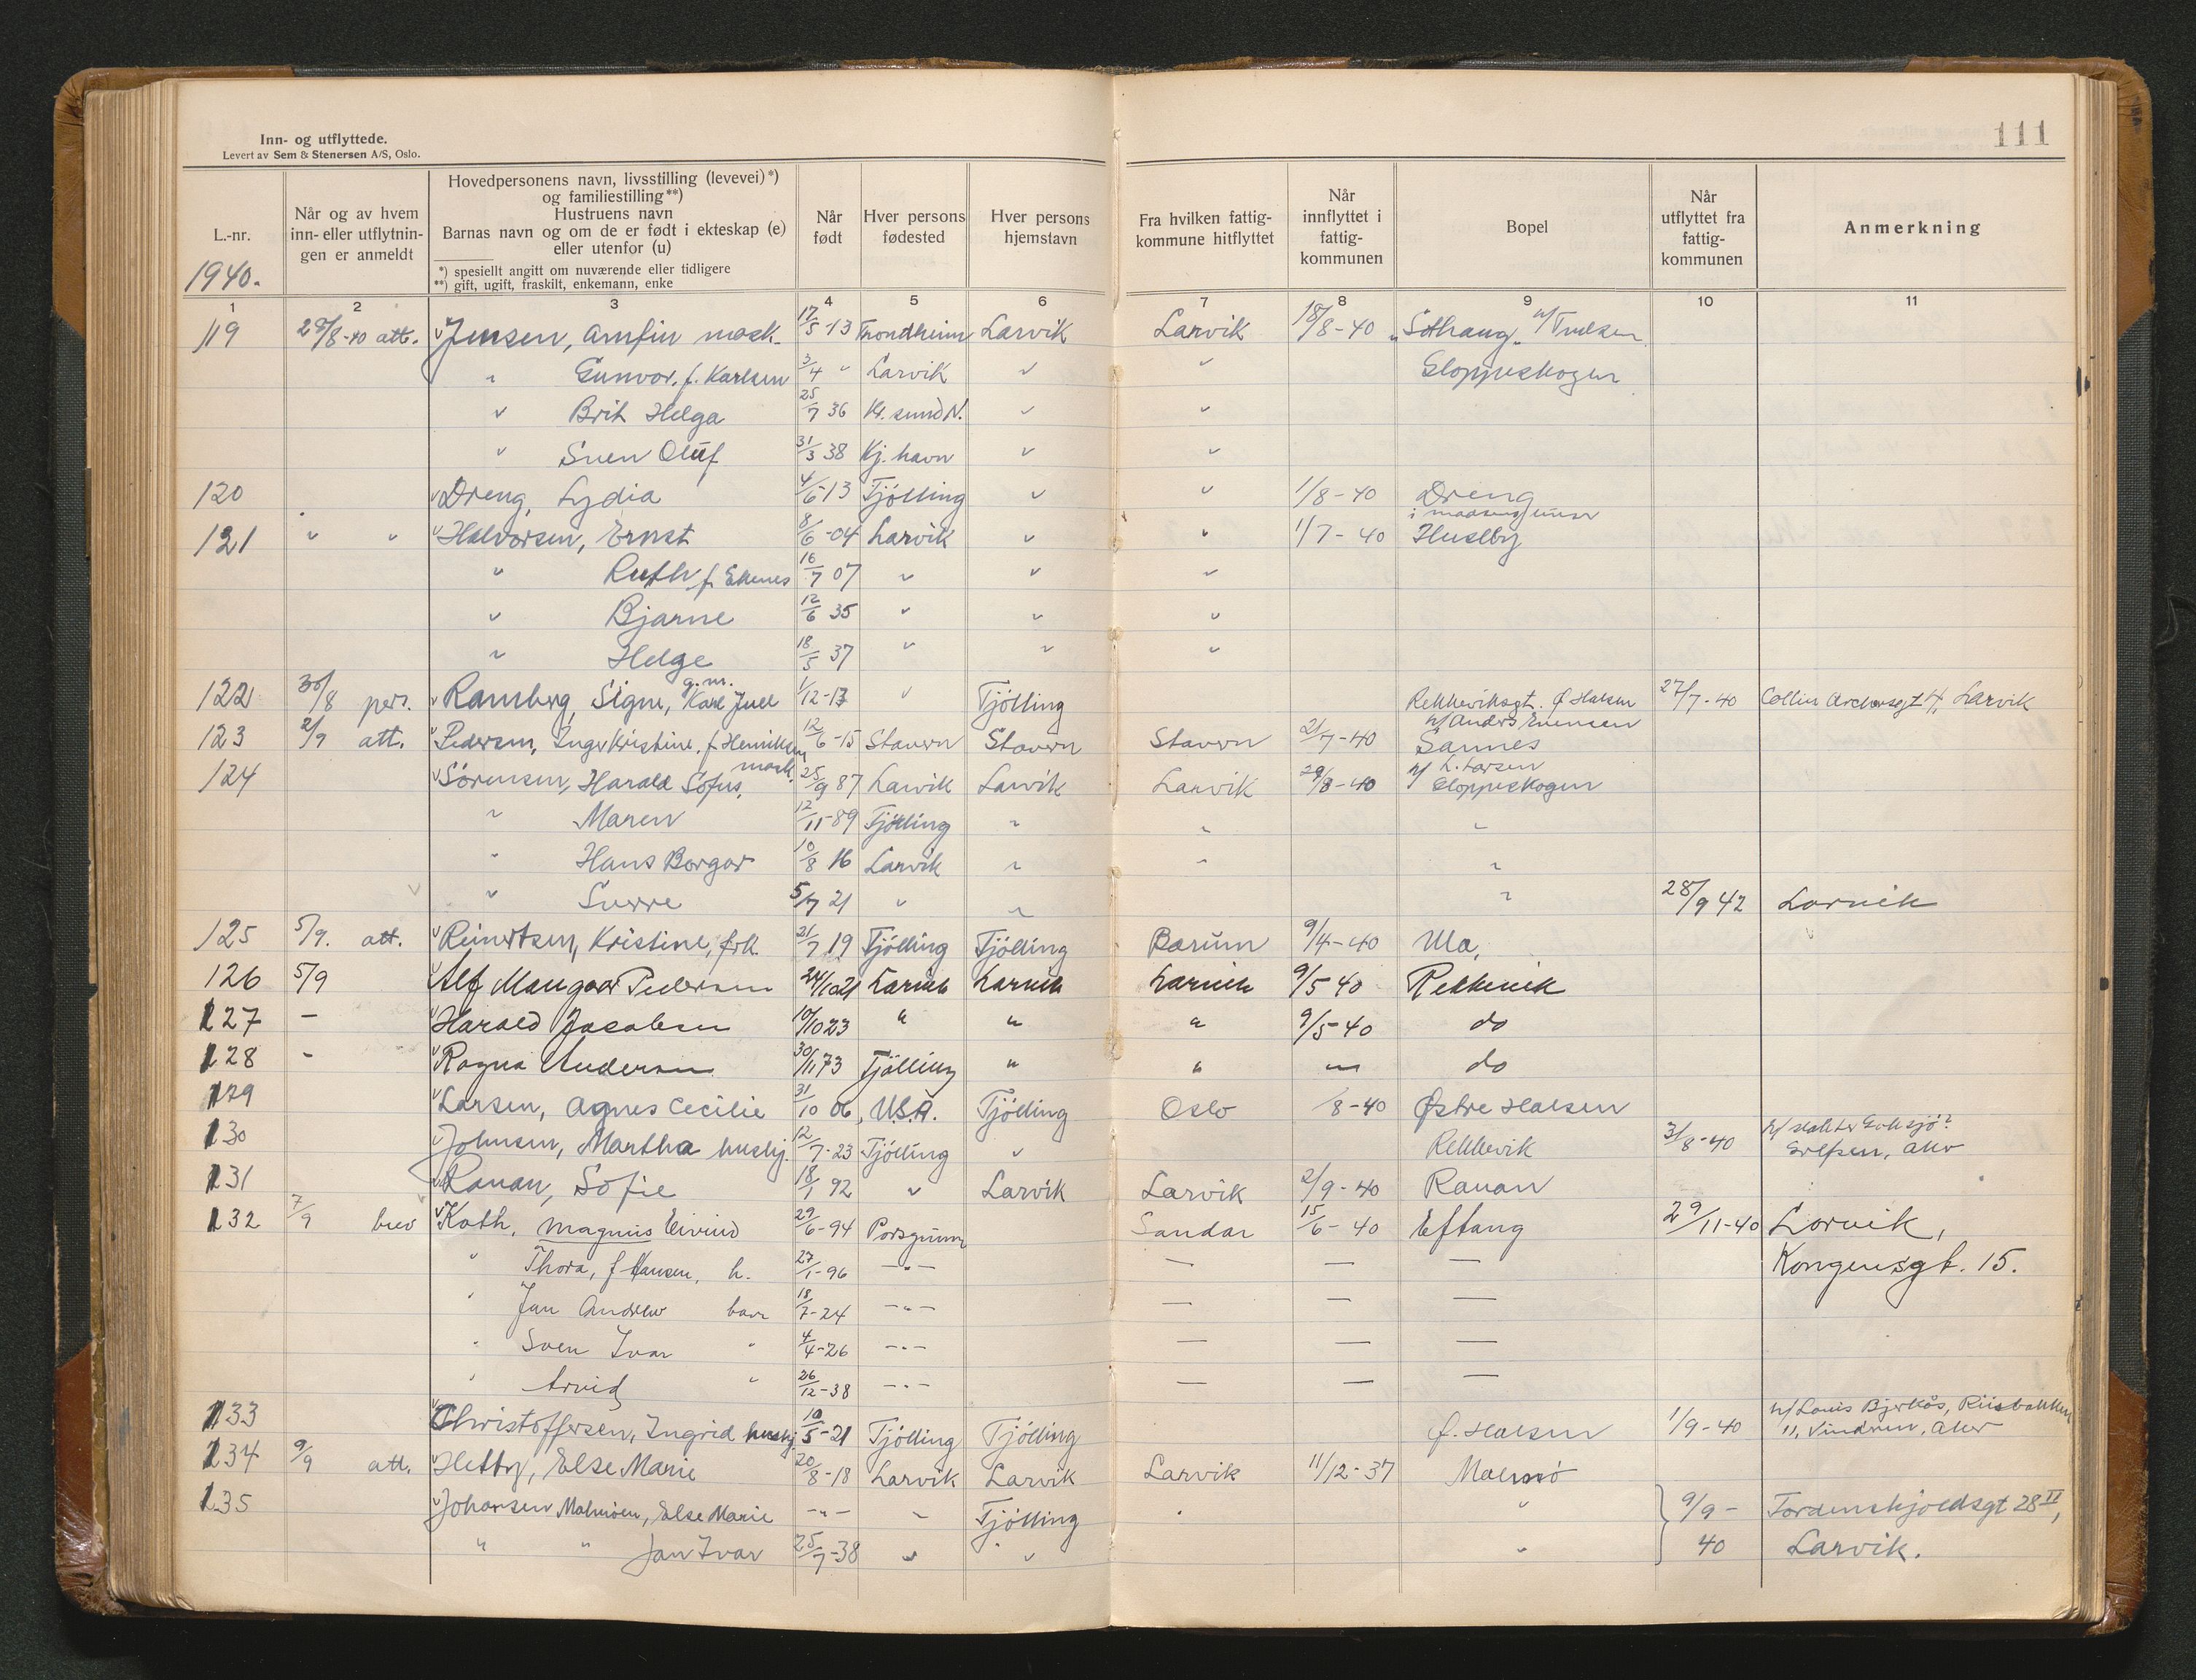 Inn- og utflyttede.
Levert av Sem & Stenersen A/S, Oslo.
111
L.-nr.
1940.
Når og av hvem
inn- eller utflytnin-
gen er anmeldt
Hovedpersonens navn, livsstilling (levevei)*)
og familiestilling**)
Hustruens navn
Barnas navn og om de er født i ekteskap (e)
eller utenfor (u)
*) spesiellt angitt om nuværende eller tidligere
**) gift, ugift, fraskilt, enkemann, enke
Når
født
Hver persons
fødested
Hver persons
hjemstavn
Fra hvilken fattig-
kommune hitflyttet
Når
innflyttet i
fattig-
kommunen
Bopel
Når
utflyttet fra
fattig-
kommunen
Anmerkning
1 2 3 4 5 6 7 8 9 10 11
119 28/8-40 att. Jensen, Arnfin mask. 17/5-13 Trondheim Larvik Larvik 18/8-40 "Solhaug" n/ Trulsen
" Gunvor, f. Karlsen 3/4 " Larvik " " Gloppeskogen
" Brit Helga 25/7 36 Kr. sund N. " "
" Sven Oluf 31/3 38 Kj. havn " "
120 Dreng, Lydia 4/6-13 Tjölling " " 1/8-40 Dreng
121 " " Halvorsen, Ernst 8/6-04 Larvik " " 1/7-40 Huseby
" Ruth f. Ekenes 16/7 07 " " "
" Bjarne 12/6 35 " " "
" Helge 18/5 37 " " "
122 30/8 pers. Ramberg, Signe, g.m. Karl Juel 1/12-13 " Tjölling Rekkeviksgt. Ø Halsen 27/7-40 Collin Archersgt 4, Larvik
123 2/9 att. Pedersen, Inger Kristine, f. Henriksen 12/6-15 Stavern Stavern Stavern 21/7-40 n/ Anders Evensen
Sannes
124 Sörensen, Harald Sofus, mask. 25/9 87 Larvik Larvik Larvik 29/8-40 n/ L. Larsen
Gloppeskogen
" Maren 12/11-89 Tjölling " " "
" Hans Borgar 10/8 16 Larvik " " "
" Sverre 5/7 21 " " " 28/9 42 Larvik
125 5/9. att. Reinertsen, Kristine, frk. 21/7 19 Tjölling Tjölling Bærum 9/4-40 Ula,
126 5/9 Alf Mangor Pedersen 24/10 21 Larvik Larvik Larvik 9/5 40 Rekkevik
127 - Harald Jacobsen 10/10 23 " " " 9/5-40 do
128 - Ragna Andersen 30/11 73 Tjölling " " " do
129 Larsen, Agnes Cecilie 31/10 06, U.S.A. Tjölling Oslo /8-40 Østre Halsen
130 Johnsen, Martha hushj. 12/7-23 Tjölling " Rekkevik 31/8-40
Grefsen, Aker
131 Rauan, Sofie 18/1 92 " Larvik Larvik 2/9-40 Rauan
132 7/9 brev Koth, Magnus Eivind 29/6-94 Porsgrunn Sandar 15/6-40 Eftang 29/11-40 Larvik,
" Thora, f Hansen, h. 27/1-96 -"- — — — Kongensgt. 15.
" Jan Andrew barn 18/7-24 -"- — — —
" Sven Ivar " 4/4-26 -"- — — —
" Arvid " 26/12-38 -"- — — —
133 Christoffersen, Ingrid hushj. 10/5-21 Tjölling Tjölling Ø. Halsen 1/9-40 n/ Louis Bjerkås, Riisbakken
11, Vindern, Aker
134 9/9 att. Hetby, Else Marie 20/8-18 Larvik Larvik Larvik 11/12-37 Malmø
135 Johansen Malmöen, Else Marie -"- " Tjölling " " 9/9- Tordenskjoldsgt 28 II,
" " Jan Ivar 25/7-38 " " " 40 Larvik.